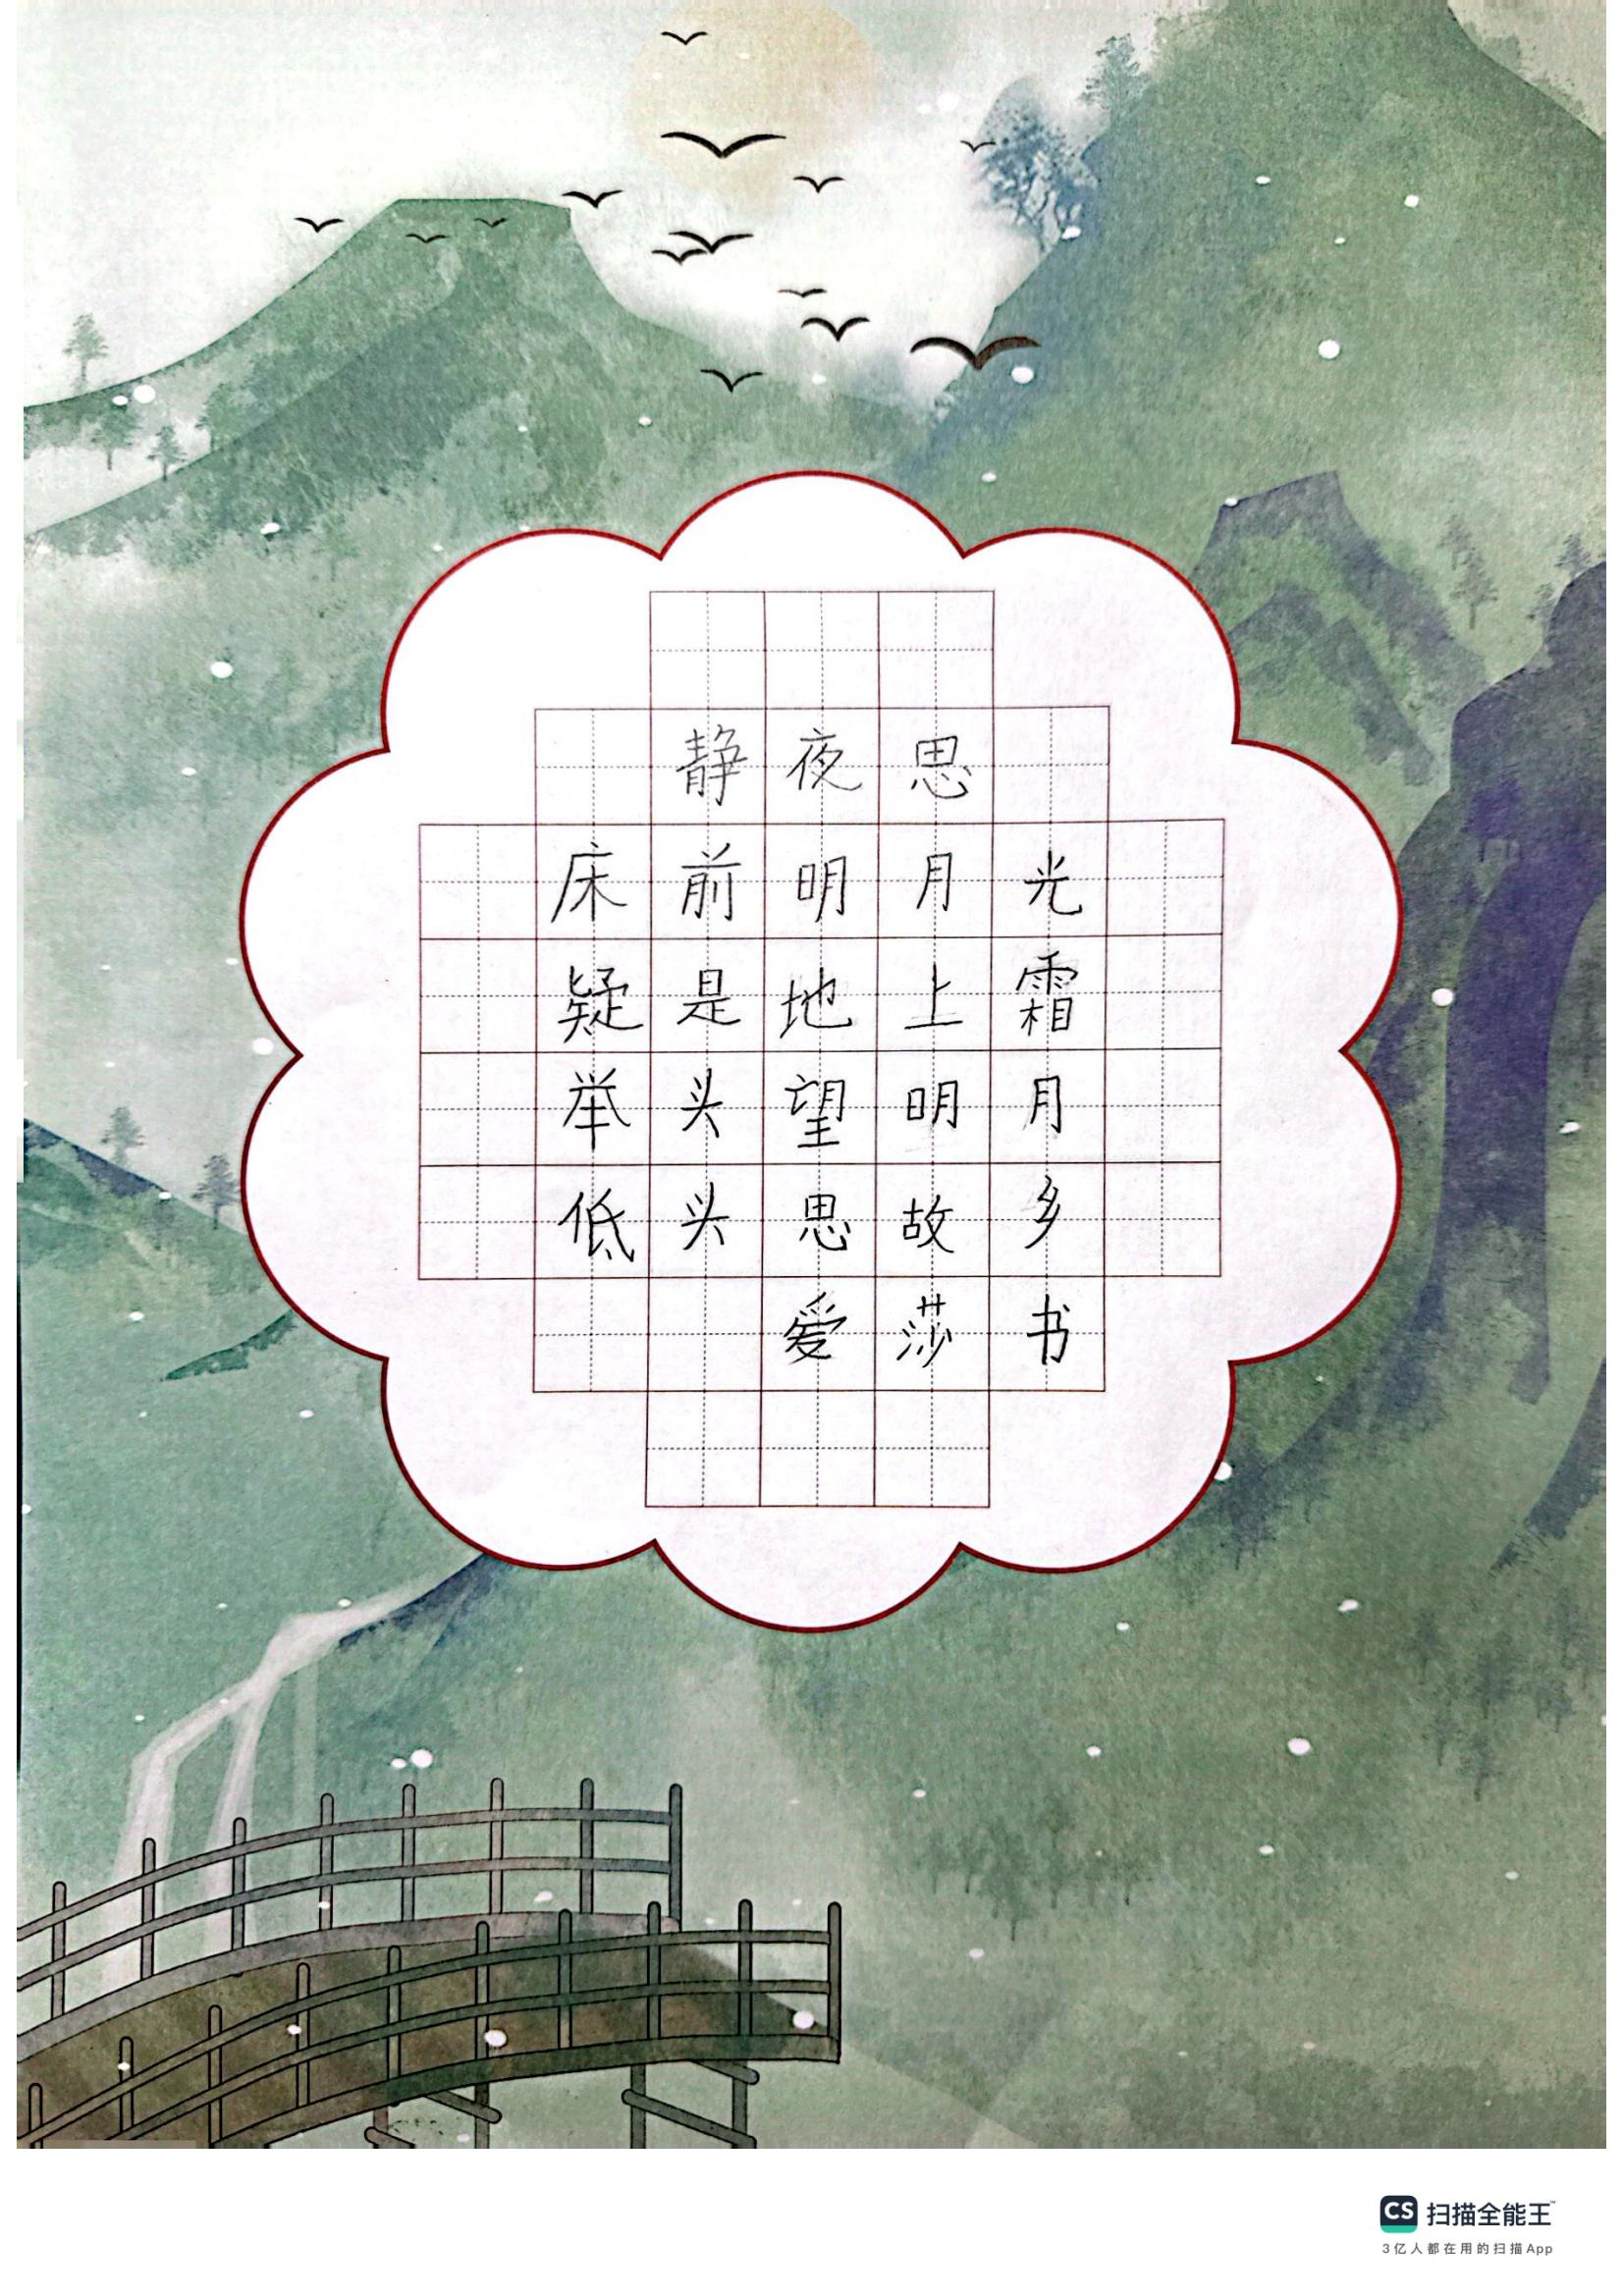 静夜思
床前明月光
疑是地上霜
举头望明月
低头思故乡
爱莎书
CS 扫描全能王™
3亿人都在用的扫描App